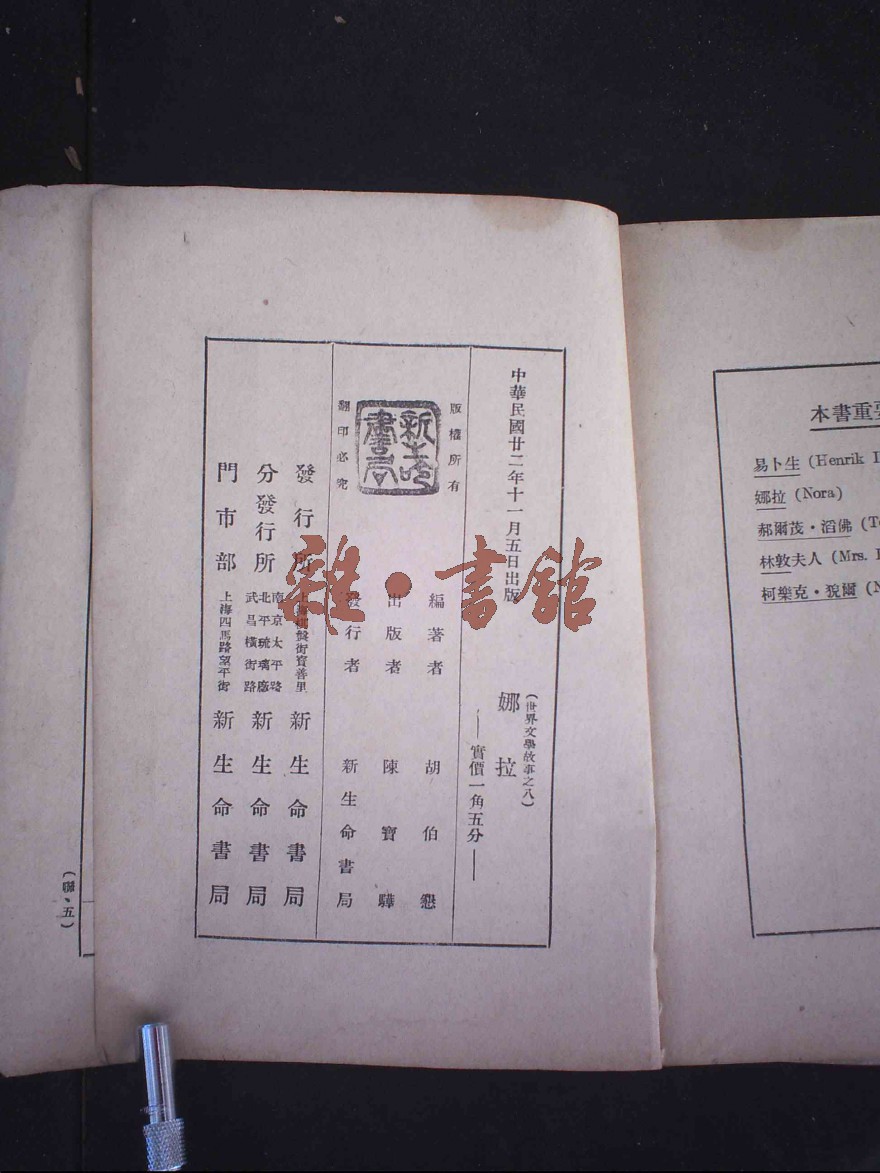 中華民國廿二年十一月五日出版
(世界文學故事之八)
娜拉
——實價一角五分——
版權所有
新生命書局
翻印必究
編著者 胡伯懇
出版者 陳寶驊
發行者 新生命書局
發行所 上海棋盤街寶善里 新生命書局
分發行所 南京太平路 北平琉璃廠 武昌橫街路 新生命書局
門市部 上海四馬路望平街 新生命書局
雜·書館
本書重要
易卜生 (Henrik I
娜拉 (Nora)
郝爾茂·滔佛 (T
林敦夫人 (Mrs.
柯樂克·猊爾 (N
(聯·五)